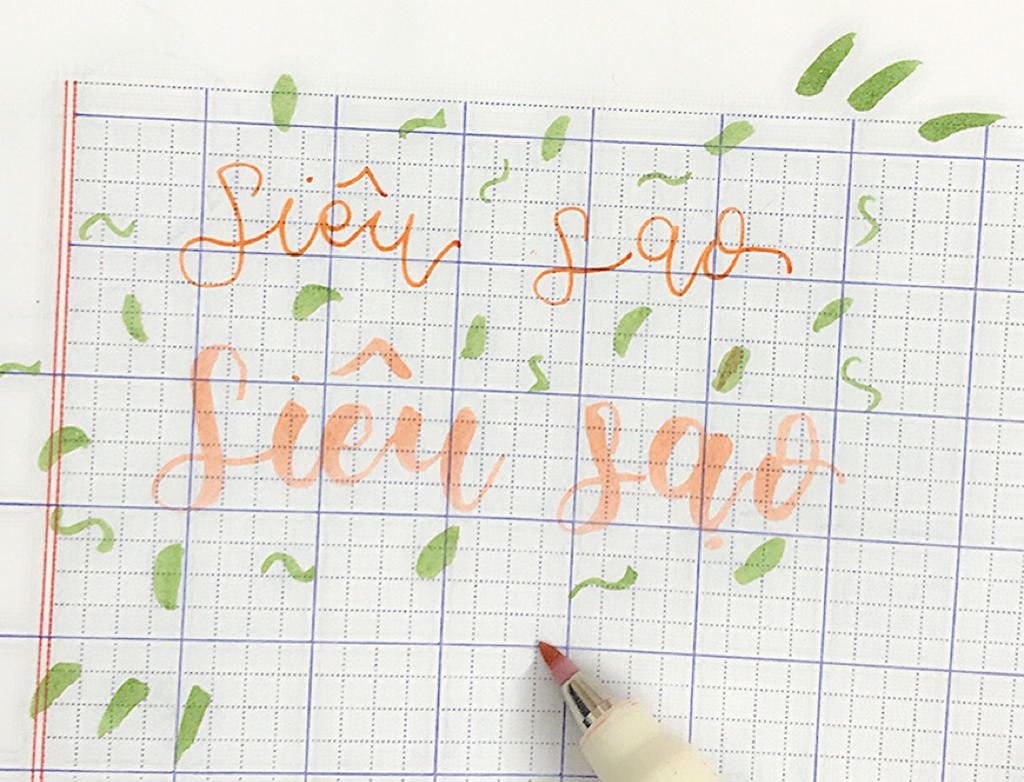 Siêu sao
Siêu sạo